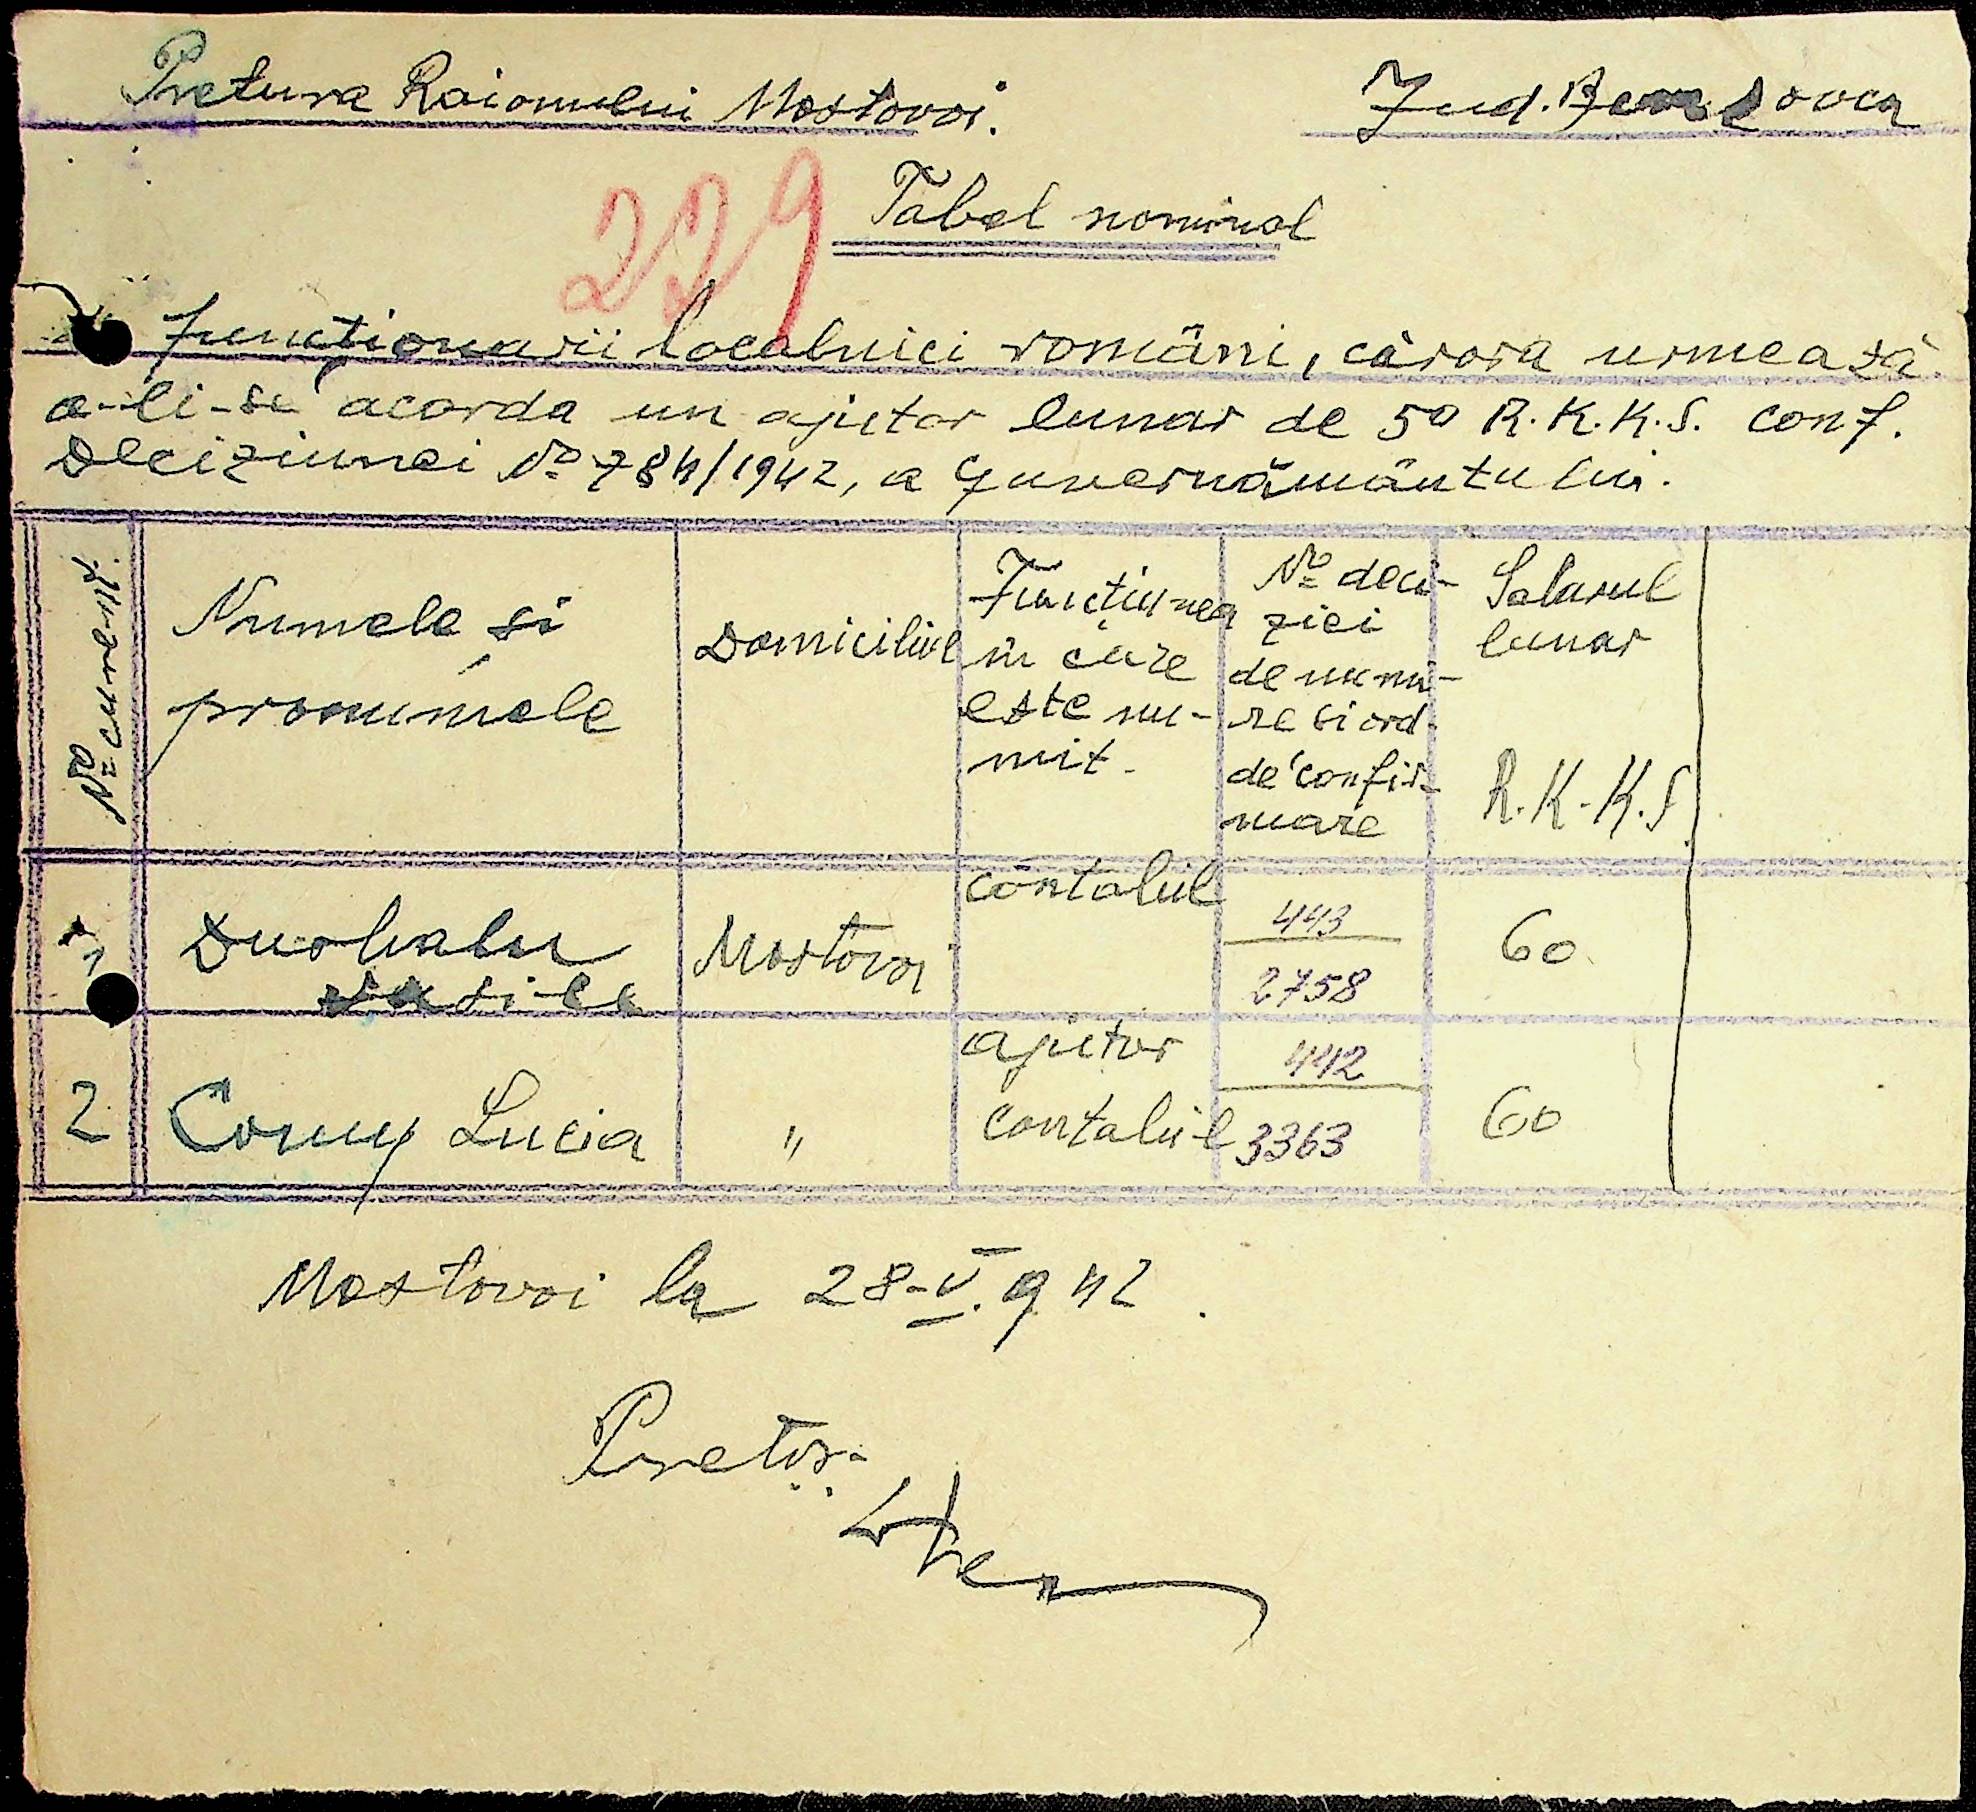 Pretura Raionului Mostovoi. Jud. Berezovca
229
Tabel nominal
Funcţionarii localnici români, cărora urmează
a-li-se acorda un ajutor lunar de 50 R.K.K.S. conf.
Deciziunei № 784/1942, a guvernământului.
№ curent.
Numele si
pronumele
Domiciliul
Funcţiunea
in care
este nu-
mit.
№ deci-
ziei
de numi-
re si ord.
de confir-
mare
Salarul
lunar
R.K.K.S.
1 Mostovoi contabil 443 60
2758
2 Lucia " ajutor contabil 442 60
3363
Mostovoi la 28-V.942.
Pretor